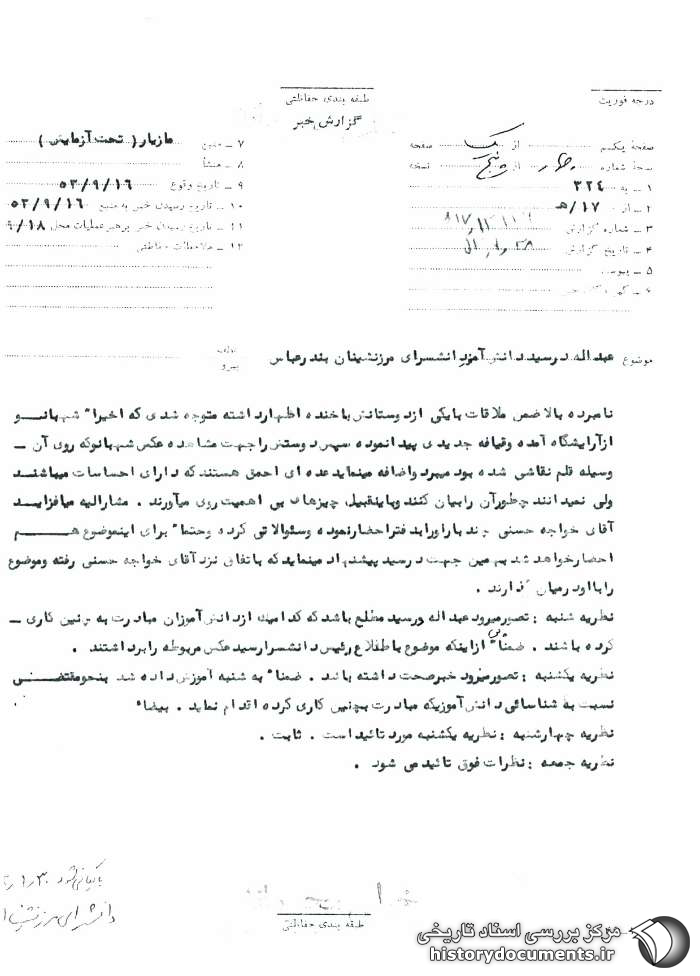 طبقه بندی حفاظتی
گزارش خبر
درجه فوریت
صفحهٔ یکم از یک صفحه
نسخهٔ شماره چهار از پنج نسخه
۱ ـ به ۳۲۴
۲ ـ از ۱۷/هـ
۳ ـ شماره گزارش
۴ ـ تاریخ گزارش
۵ ـ پیوست
۶ ـ
۷ ـ منبع مازیار ( تحت آزمایش )
۸ ـ منشأ
۹ ـ تاریخ وقوع ۵۳/۹/۱۶
۱۰ ـ تاریخ رسیدن خبر به منبع ۵۳/۹/۱۶
۱۱ ـ تاریخ رسیدن خبر برهبر عملیات محل ۹/۱۸
۱۲ ـ ملاحظات حفاظتی
موضوع عبداله درسید دانش آموز دانشسرای مرزنشینان بندرعباس
پیرو
نامبرده بالا ضمن ملاقات بایکی از دوستانش باخنده اظهارداشته متوجه شدی که اخیرا" شهبانـــو
ازآرایشگاه آمده وقیافه جدیدی پیدانموده سپس دوستش راجهت مشاهده عکس شهبانوکه روی آن ـ
وسیله قلم نقاشی شده بود میبرد واضافه مینماید عده ای احمق هستند که دارای احساسات میباشند
ولی نمیدانند چطورآن رابیان کنند وباینقبیل چیزهای بی اهمیت روی میآورند . مشارالیه میافزایــد
آقای خواجه حسنی چند باراورابدفتراحضارنموده وسئوالاتی کرده وحتما" برای اینموضوع هـــم
احضارخواهد شد بهمین جهت درسید پیشنهاد مینماید که باتفاق نزد آقای خواجه حسنی رفته وموضوع
رابااودرمیان گذارند .
نظریه شنبه : تصورمیرود عبداله درسید مطلع باشد که کدامیک ازدانش آموزان مبادرت به چنین کاری ـ
کرده باشند . ضمنا" پس ازاینکه موضوع باطلاع رئیس دانسسرارسید عکس مربوطه رابرداشتند .
نظریه یکشنبه : تصورمیرود خبرصحت داشته باشد . ضمنا" به شنبه آموزش داده شد بنحومقتضـــی
نسبت به شناسائی دانش آموزیکه مبادرت بچنین کاری کرده اقدام نماید . بیضا"
نظریه چهارشنبه : نظریه یکشنبه مورد تائیداست . ثابت .
نظریه جمعه : نظرات فوق تائید می شود .
بایگانی شود
دانشسرای مرزنشینان
طبقه بندی حفاظتی
مرکز بررسی اسناد تاریخی
historydocuments.ir